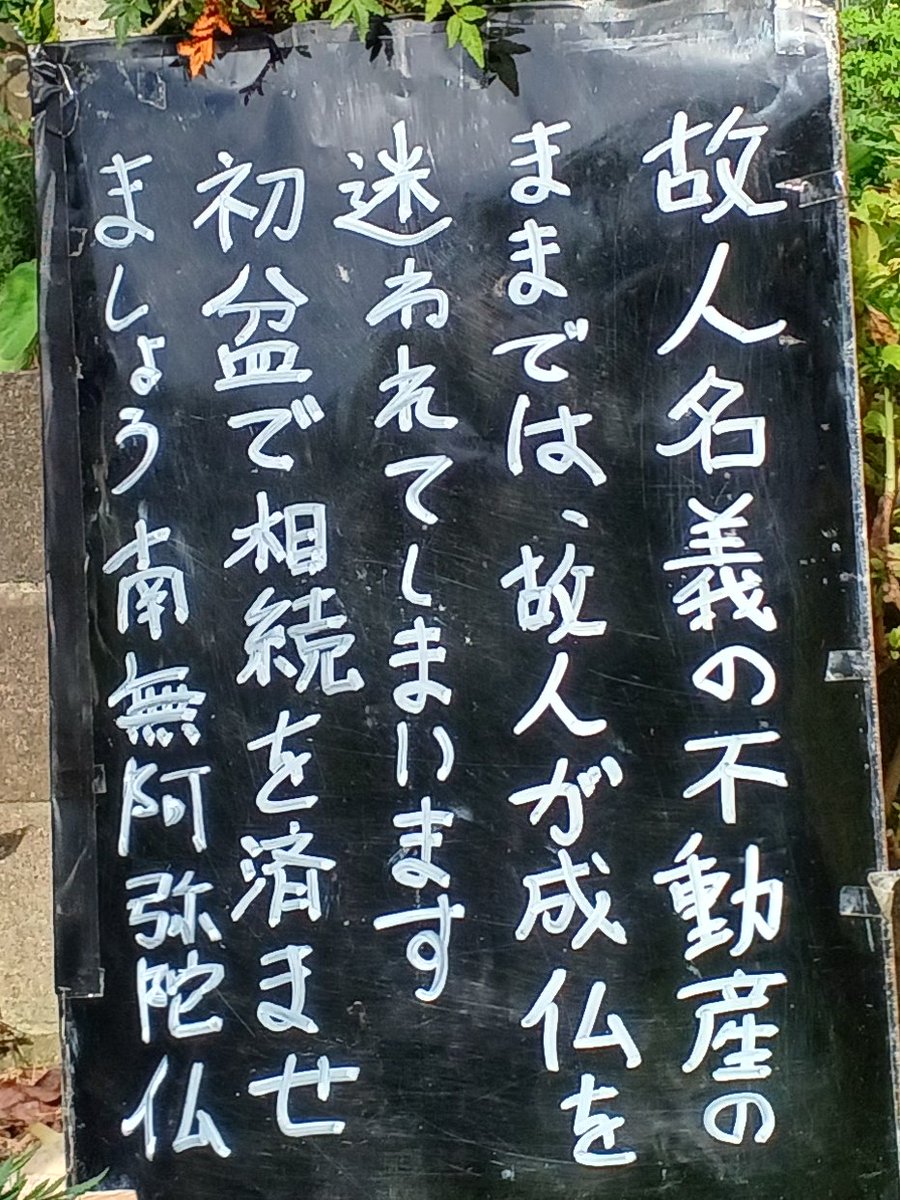 故人名義の不動産の
ままでは、故人が成仏を
迷われてしまいます
初盆で相続を済ませ
ましょう南無阿弥陀仏